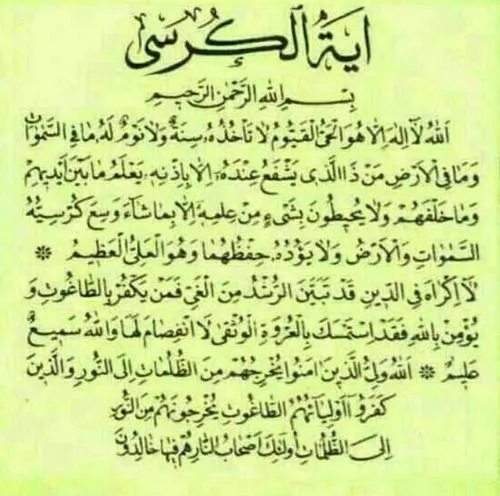 اية الكرسى
بسم الله الرحمن الرحيم
الله لا اله الا هو الحى القيوم لا تأخذه سنة ولا نوم له ما فى السموات
وما فى الارض من ذا الذى يشفع عنده الا باذنه يعلم ما بين ايديهم
وما خلفهم ولا يحيطون بشىء من علمه الا بما شاء وسع كرسيه
السموات والارض ولا يؤده حفظهما وهو العلى العظيم *
لا اكراه فى الدين قد تبين الرشد من الغى فمن يكفر بالطاغوت و
يؤمن بالله فقد استمسك بالعروة الوثقى لا انفصام لها والله سميع
عليم * الله ولى الذين امنوا يخرجهم من الظلمات الى النور والذين
كفروا اولياتهم الطاغوت يخرجونهم من النور
الى الظلمات اولئك اصحاب النار هم فيها خالدون